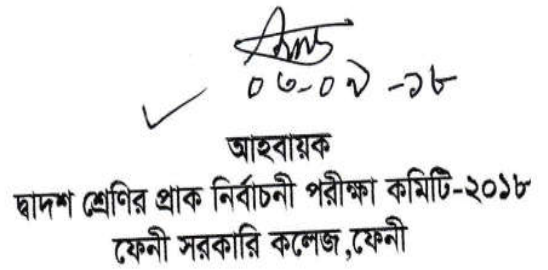 ০৬-০৯-১৮
আহবায়ক
দ্বাদশ শ্রেণির প্রাক নির্বাচনী পরীক্ষা কমিটি-২০১৮
ফেনী সরকারি কলেজ,ফেনী